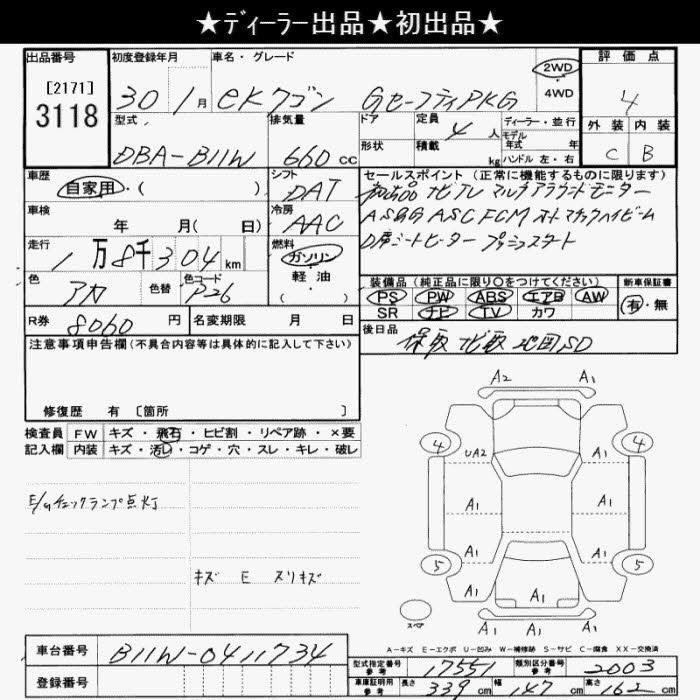 ★ディーラー出品★初出品★
出品番号
[2171]
3118
初度登録年月
30年 1月
車名・グレード
eKワゴン GセーフティPKG
2WD
4WD
評価点
4
外装 内装
C B
型式
DBA-B11W
排気量
660 cc
ドア
形状
定員 4人
積載 kg
ディーラー・並行
モデル
年式 年
ハンドル 左・右
車歴
自家用・( )
シフト
DAT
セールスポイント (正常に機能するものに限ります)
初出品 ナビTV マルチアラウンドモニター
AS&G ASC FCM オートマチックハイビーム
D席シートヒーター プッシュスタート
車検
年 月( 日)
冷房
AAC
走行
1万8千304 km
燃料
ガソリン
軽・油
( )
色
アカ
色替
色コード
P26
装備品 (純正品に限り○をつけてください)
PS PW ABS エアB AW
SR ナビ TV カワ
新車保証書
有・無
R券 8060 円
名変期限 月 日
後日品
保取 ナビ取 地図SD
注意事項申告欄(不具合内容等は具体的に記入して下さい)
修復歴 有 [箇所 ]
検査員
記入欄
FW キズ・飛石・ヒビ割・リペア跡・×要
内装 キズ・汚れ・コゲ・穴・スレ・キレ・破レ
E/gチェックランプ点灯
キズ E スリキズ
A2 A1
4 4
UA2 A1
A1 A1
A1 A1
5 5
A1 A1 A1
A1 A1
スペア
A-キズ E-エクボ U-凹み W-補修跡 S-サビ C-腐食 XX-交換済
車台番号
B11W-0411734
登録番号
型式指定番号
参考
17551
類別区分番号
参考
2003
車庫証明用
参考
長さ 339 cm 幅 147 cm 高さ 162 cm